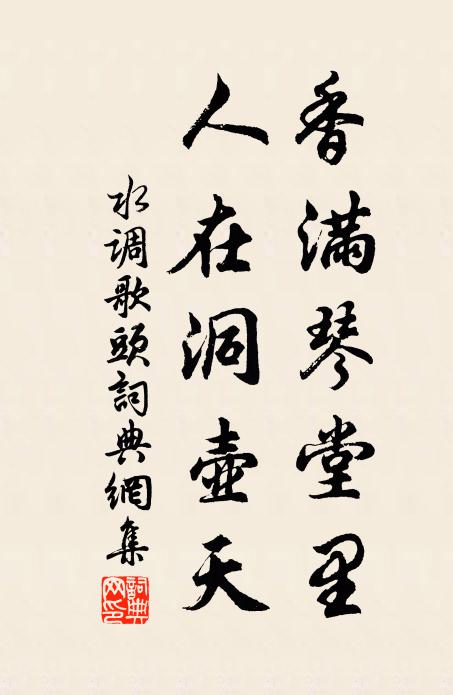 香滿琴堂里
人在洞壺天
水调歌頭詞典網集
詞典网印